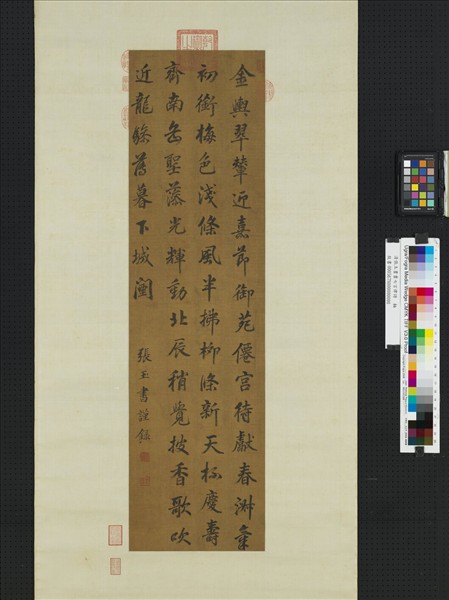 金輿翠輦迎嘉節御苑僊宮待獻春淑氣
初銜梅色淺條風半拂柳條新天杯慶壽
齊南岳聖藻光輝動北辰稍覺披香歌吹
近龍驂薄暮下城闉
張玉書謹錄